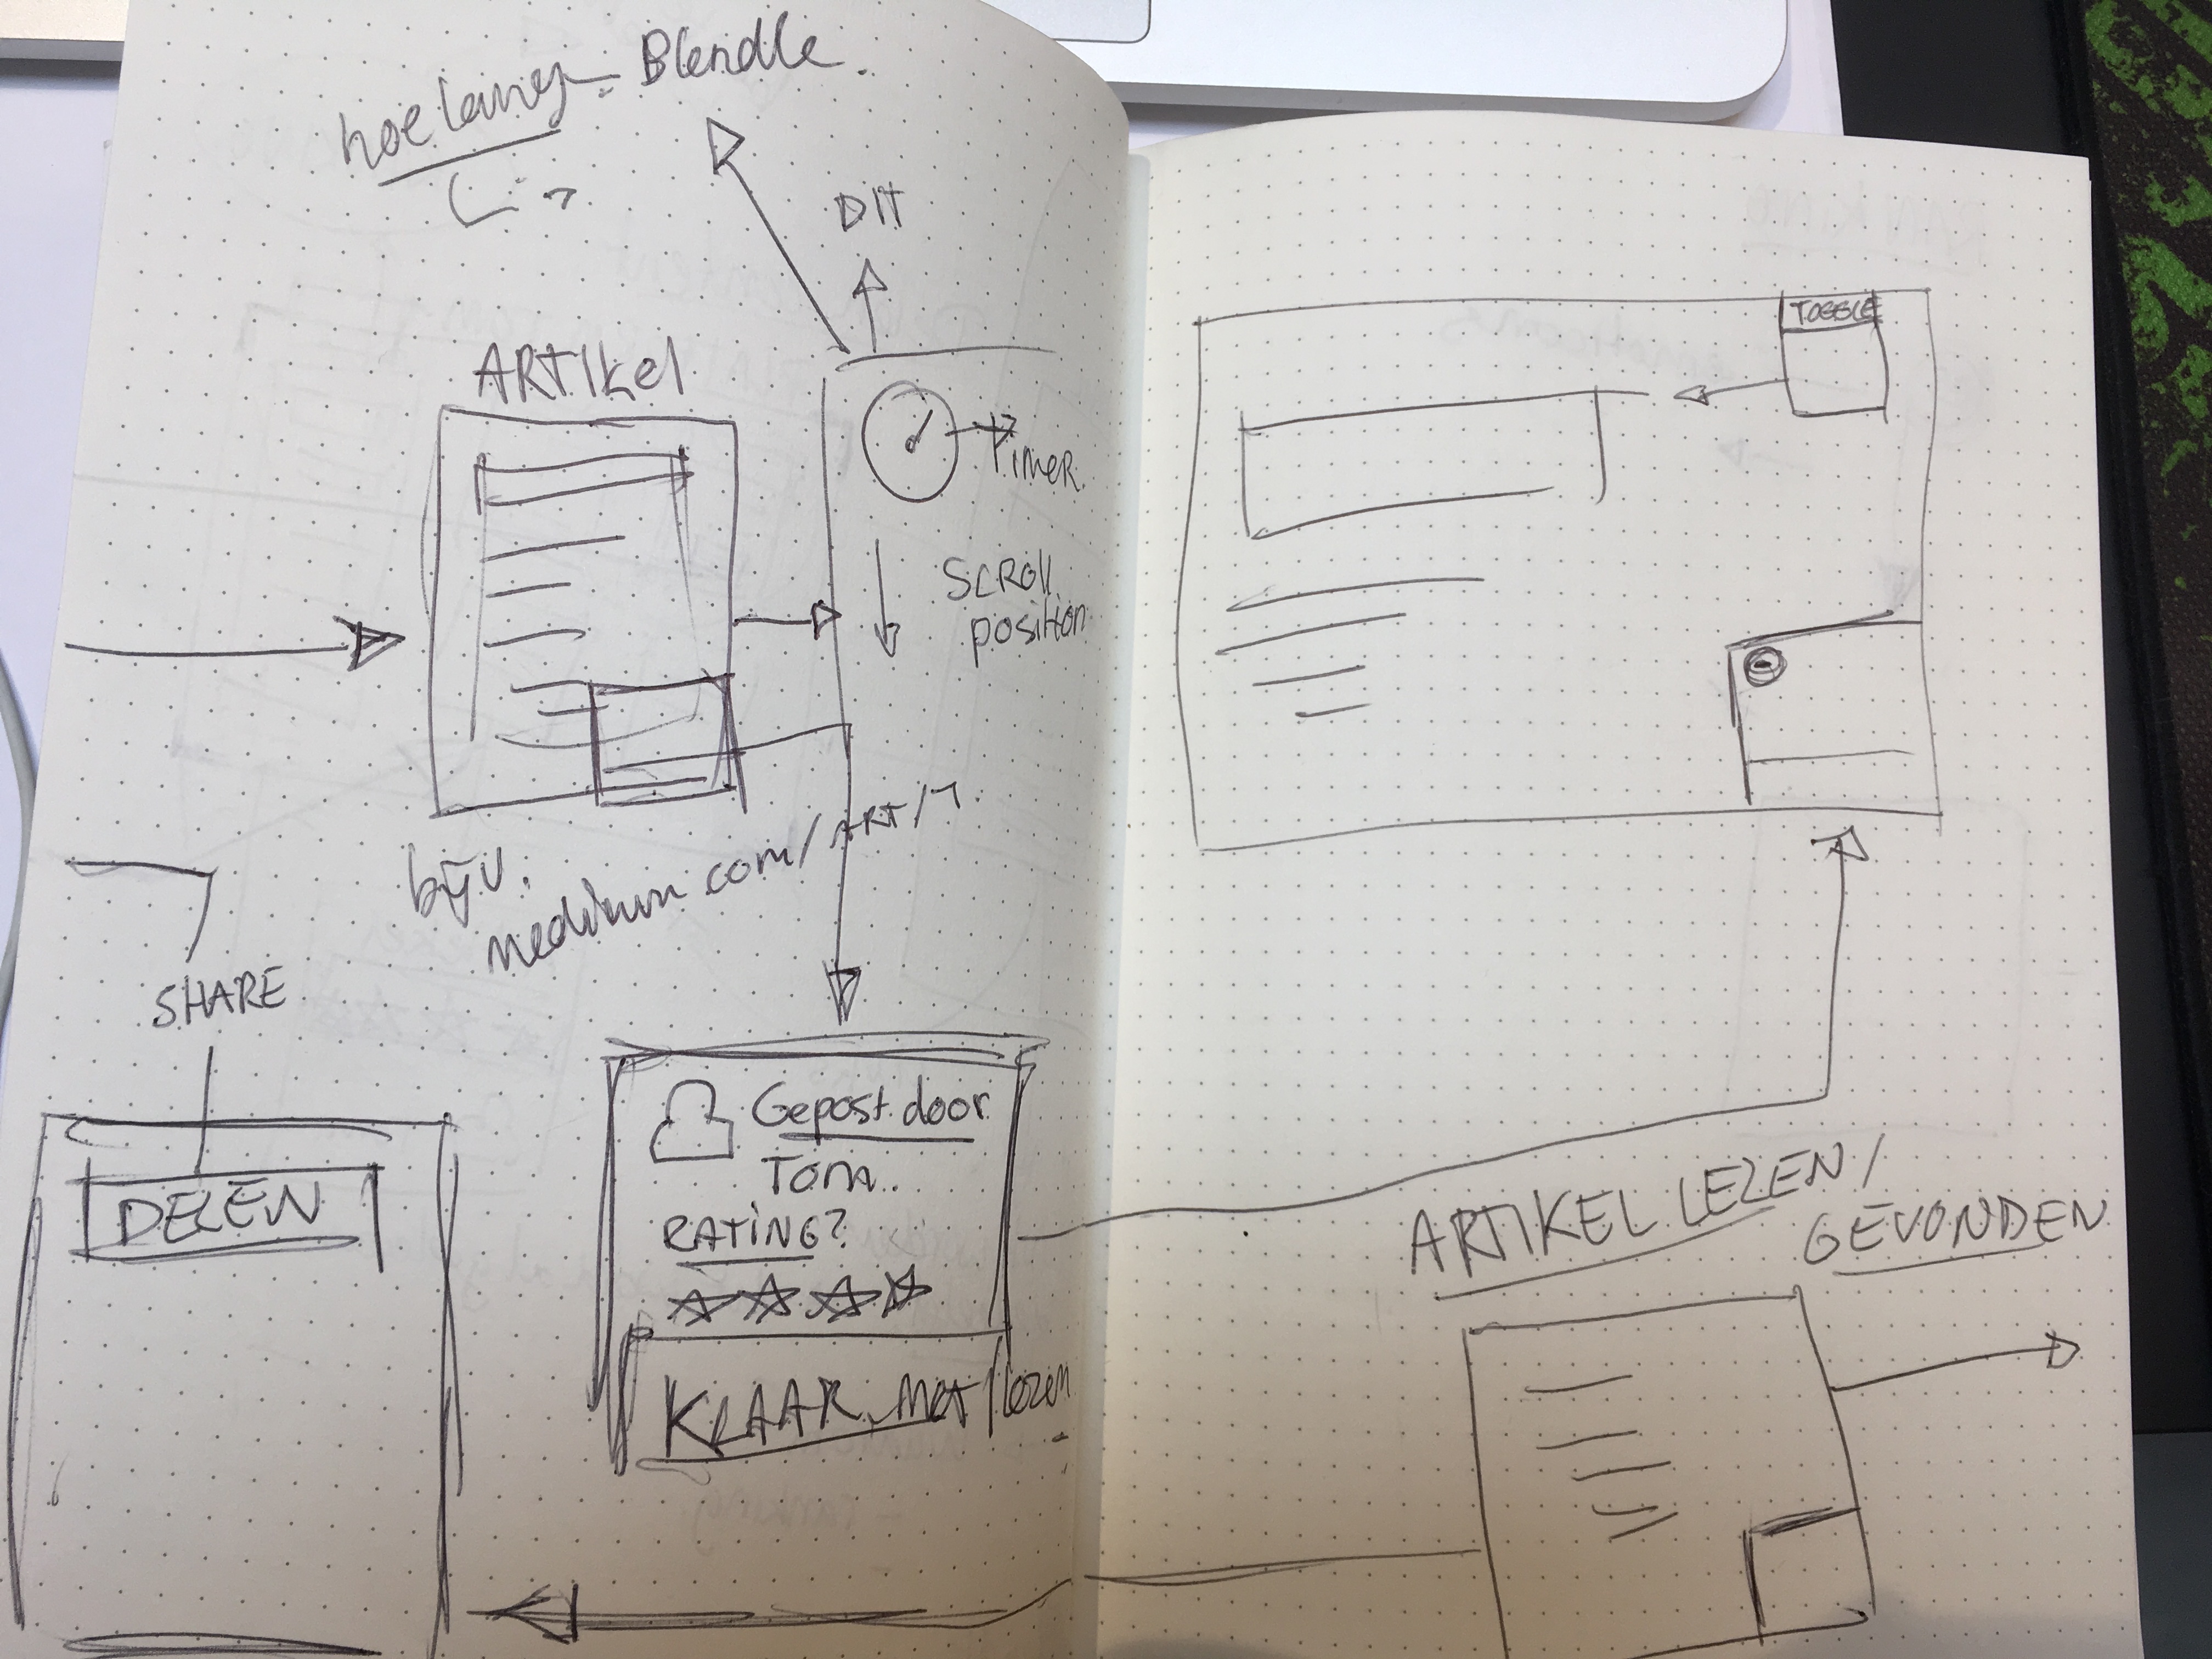 hoe lang Blendle.
DIT
ARTIKel
timeR
SCROll
position
bijv.
medium.com/ART/1
SHARE
DELEN
Gepost door
Tom..
RATING?
KLAAR met lezen
TOGGLE
ARTIKEL LEZEN/
GEVONDEN
- ranking